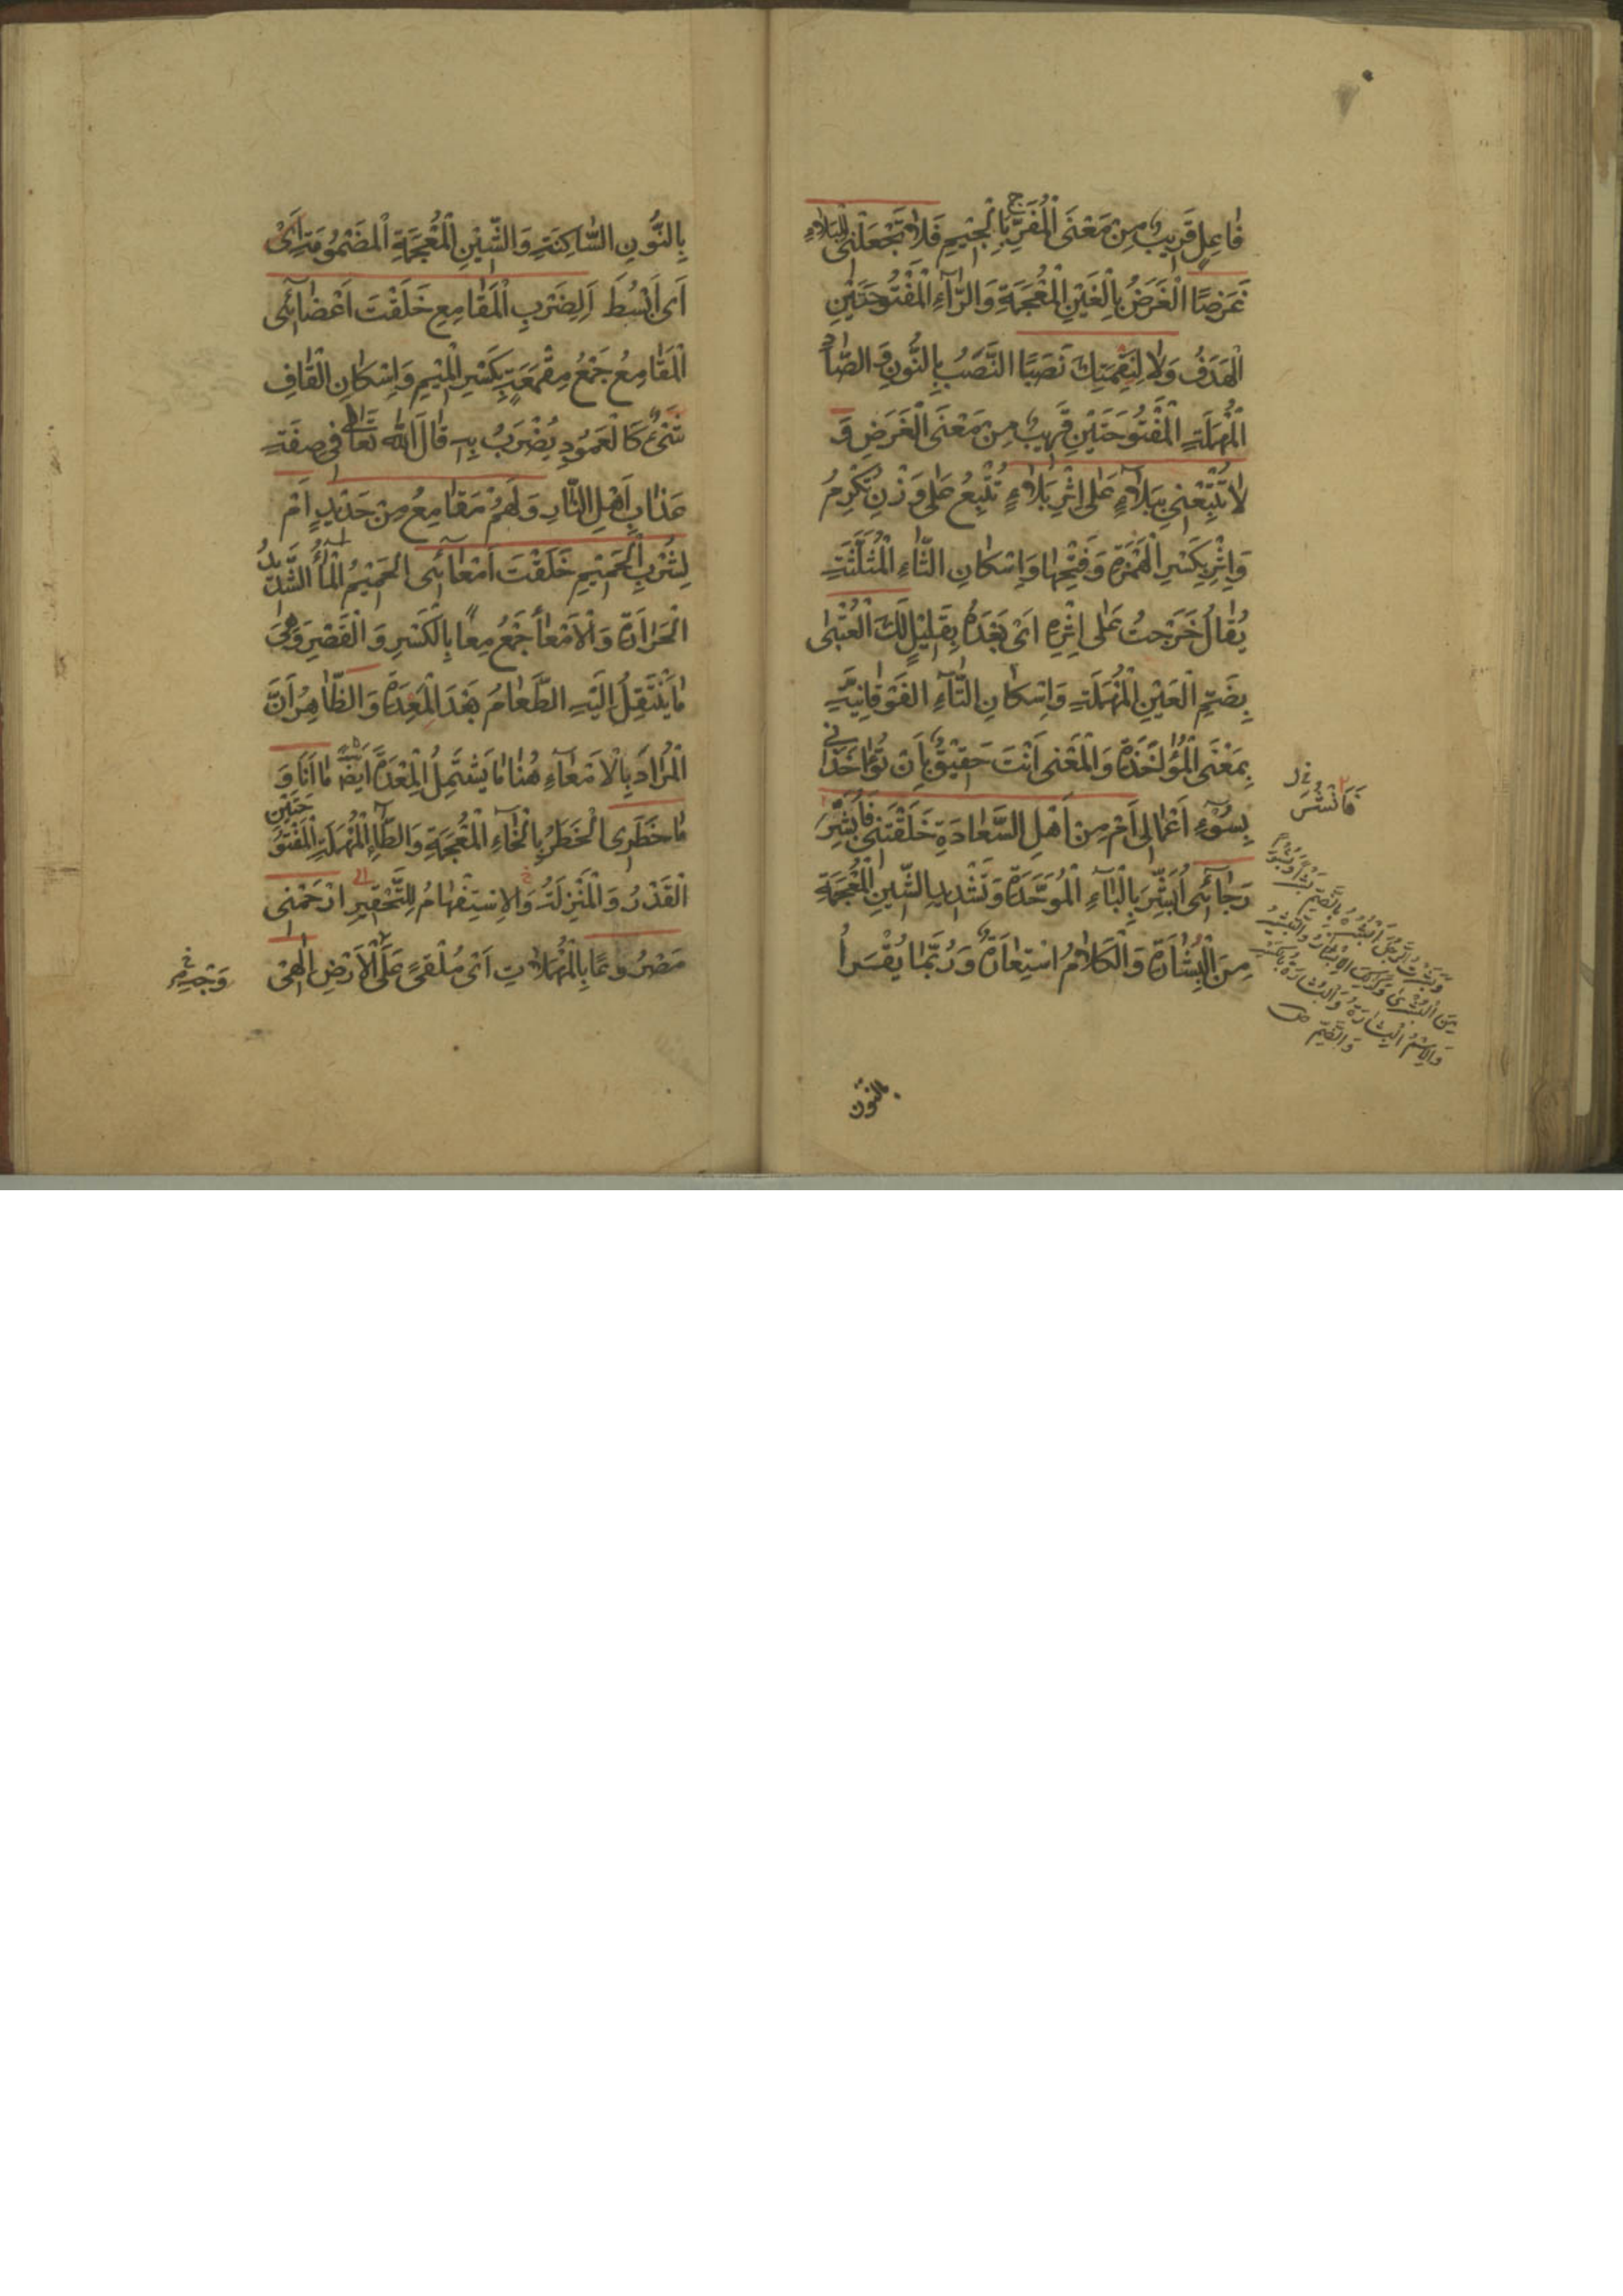 فَاعِلٍ قَرِيبٌ مِنْ مَعْنَى الْمُفَرِّجِ بِالْجِيمِ فَلَا تَجْعَلْنِي لِلْبَلَاءِ
غَرَضًا الْغَرَضُ بِالْغَيْنِ الْمُعْجَمَةِ وَالرَّاءِ الْمَفْتُوحَتَيْنِ
الْهَدَفُ وَلَا لِنَقِمَتِكَ نَصَبًا النَّصَبُ بِالنُّونِ وَ الصَّادِ
الْمُهْمَلَةِ الْمَفْتُوحَتَيْنِ قَرِيبٌ مِنْ مَعْنَى الْغَرَضِ وَ
لَا تُتْبِعْنِي بِبَلَاءٍ عَلَى اِثْرِ بَلَاءٍ تُتْبِعُ عَلَى وَزْنِ تُكْرِمُ
وَاِثْرِ بِكَسْرِ الْهَمْزَةِ وَفَتْحِهَا وَاِسْكَانِ الثَّاءِ الْمُثَلَّثَةِ
يُقَالُ خَرَجْتُ عَلَى اِثْرِهِ اَىْ بَعْدَهُ بِقَلِيْلٍ لَكَ الْعُتْبَى
بِضَمِّ الْعَيْنِ الْمُهْمَلَةِ وَاِسْكَانِ التَّاءِ الفَوْقَانِيَّةِ
بِمَعْنَى الْمُؤَاخَذَةِ وَالْمَعْنَى اَنْتَ حَقِيْقٌ بِاَنْ تُؤَاخِذَنِي
بِسُوْءِ اَعْمَالِى اَمْ مِنْ اَهْلِ السَّعَادَةِ خَلَقْتَنِي فَاُبَشِّرَ
رَجَائِى اُبَشِّرَ بِالْبَاءِ الْمُوَحَّدَةِ وَتَشْدِيدِ الشِّينِ الْمُعْجَمَةِ
مِنَ الْبِشَارَةِ وَالْكَلَامُ اسْتِعَارَةٌ وَرُبَّمَا يُقْرَأُ
فَاَنْشُرَ
وَبَشَرْتُ الرَّجُلَ اَبْشُرُهُ بِالضَّمِّ بَشْرًا وَبُشُورًا
مِنَ الْبُشْرَى وَكَذَلِكَ الْاِبْشَارُ وَالتَّبْشِيرُ
وَالاِسْمُ الْبِشَارَةُ وَالْبُشَارَةُ بِالْكَسْرِ
وَالضَّمِّ
بالنون
بِالنُّونِ السَّاكِنَةِ وَالشِّيْنِ الْمُعْجَمَةِ الْمَضْمُومَةِ اَىْ
اَى اَبْسُطَ اَلِضَرْبِ الْمَقَامِعِ خَلَقْتَ اَعْضَائِى
الْمَقَامِعُ جَمْعُ مِقْمَعَةٍ بِكَسْرِ الْمِيْمِ وَاِسْكَانِ الْقَافِ
شَىْءٌ كَالْعَمُودِ يُضْرَبُ بِهِ قَالَ اللّٰه تَعَالَى فِى صِفَةِ
عَذَابِ اَهْلِ النَّارِ وَلَهُمْ مَقَامِعُ مِنْ حَدِيْدٍ اَمْ
لِشُرْبِ الْحَمِيْمِ خَلَقْتَ اَمْعَائِى الحَمِيْمُ الْمَاءُ الشَّدِيدُ
الْحَرَارَةِ وَالْاَمْعَاءُ جَمْعُ مِعًا بِالْكَسْرِ وَالْقَصْرِ وَهِىَ
مَا يَنْتَقِلُ اِلَيْهِ الطَّعَامُ بَعْدَ الْمَعِدَةِ وَالظَّاهِرُ اَنَّ
الْمُرَادَ بِالْاَمْعَاءِ هُنَا مَا يَشْتَمِلُ الْمِعْدَةَ اَيْضًا مَا اَنَا وَ
مَا خَطَرِى الْخَطَرُ بِالْخَاءِ الْمُعْجَمَةِ وَالطَّاءِ الْمُهْمَلَةِ الْمَفْتُوحَتَيْنِ
الْقَدْرُ وَالْمَنْزِلَةُ وَالاِسْتِفْهَامُ لِلتَّحْقِيرِ ارْحَمْنِى
مَصْرُوعًا بِالْمُهْمَلَاتِ اَىْ مُلْقًى عَلَى الْاَرْضِ اِلٰهِىْ